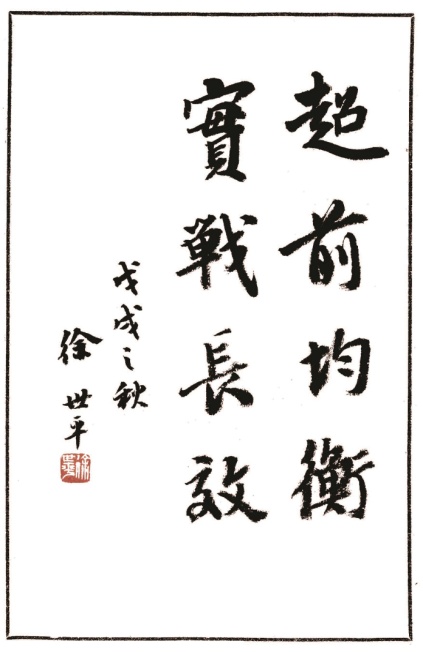 超前均衡
實戰長效
戊戌之秋
徐世平